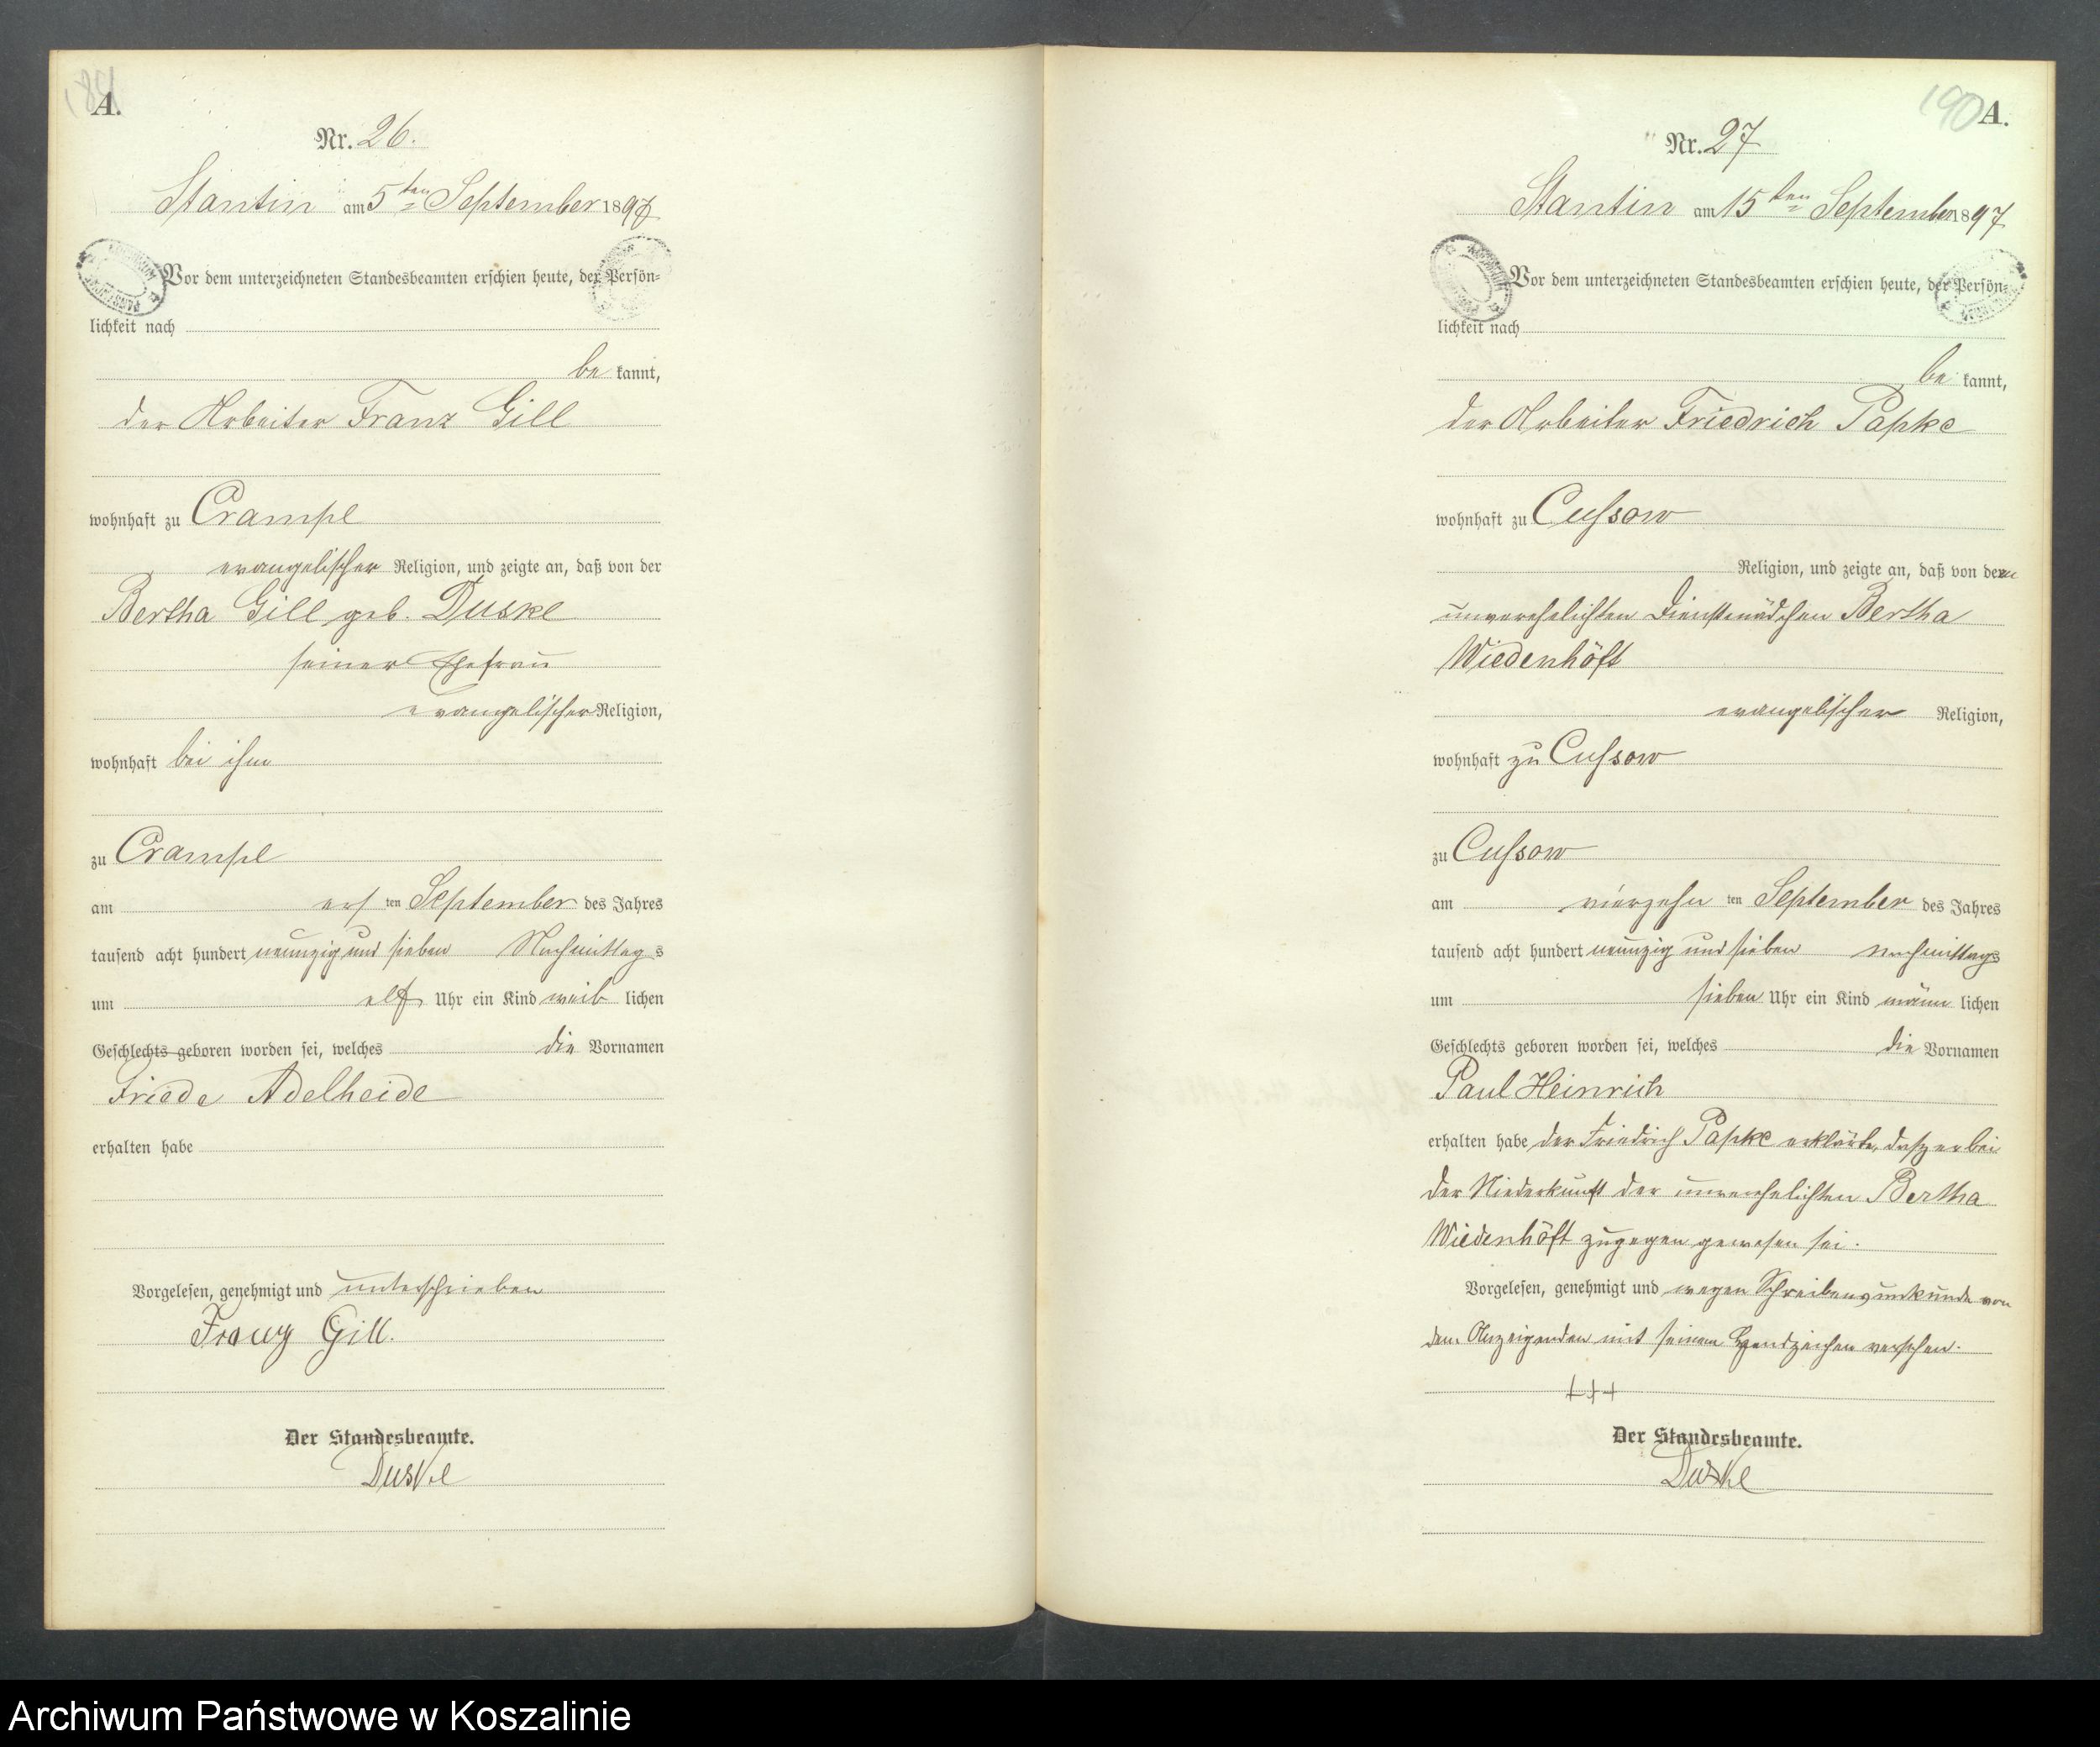 A.
Nr. 26.
Stantin am 5ten September 1897
Vor dem unterzeichneten Standesbeamten erschien heute, der Persön=
lichkeit nach
be kannt,
der Arbeiter Franz Gill
wohnhaft zu Crampe
evangelischer Religion, und zeigte an, daß von der
Bertha Gill geb. Duske
seiner Ehefrau
evangelischer Religion,
wohnhaft bei ihm
zu Crampe
am ers ten September des Jahres
tausend acht hundert neunzig und sieben Nachmittag s
um elf Uhr ein Kind weib lichen
Geschlechts geboren worden sei, welches die Vornamen
Friede Adelheide
erhalten habe
Vorgelesen, genehmigt und unterschrieben
Franz Gill.
Der Standesbeamte.
Duske
190 A.
Nr. 27
Stantin am 15ten September 1897
Vor dem unterzeichneten Standesbeamten erschien heute, der Persön=
lichkeit nach
be kannt,
der Arbeiter Friedrich Papke
wohnhaft zu Cussow
Religion, und zeigte an, daß von dem
unverehelichten Dienstmädchen Bertha
Wiedenhöft
evangelischer Religion,
wohnhaft zu Cussow
zu Cussow
am vierzehn ten September des Jahres
tausend acht hundert neunzig und sieben nachmittags
um sieben Uhr ein Kind männ lichen
Geschlechts geboren worden sei, welches die Vornamen
Paul Heinrich
erhalten habe der Friedrich Papke erklärte, daß er bei
der Niederkunft der unverehelichten Bertha
Wiedenhöft zugegen gewesen sei.
Vorgelesen, genehmigt und wegen Schreibensunkunde von
dem Anzeigenden mit seinem Handzeichen versehen.
+++
Der Standesbeamte.
Duske
Archiwum Państwowe w Koszalinie